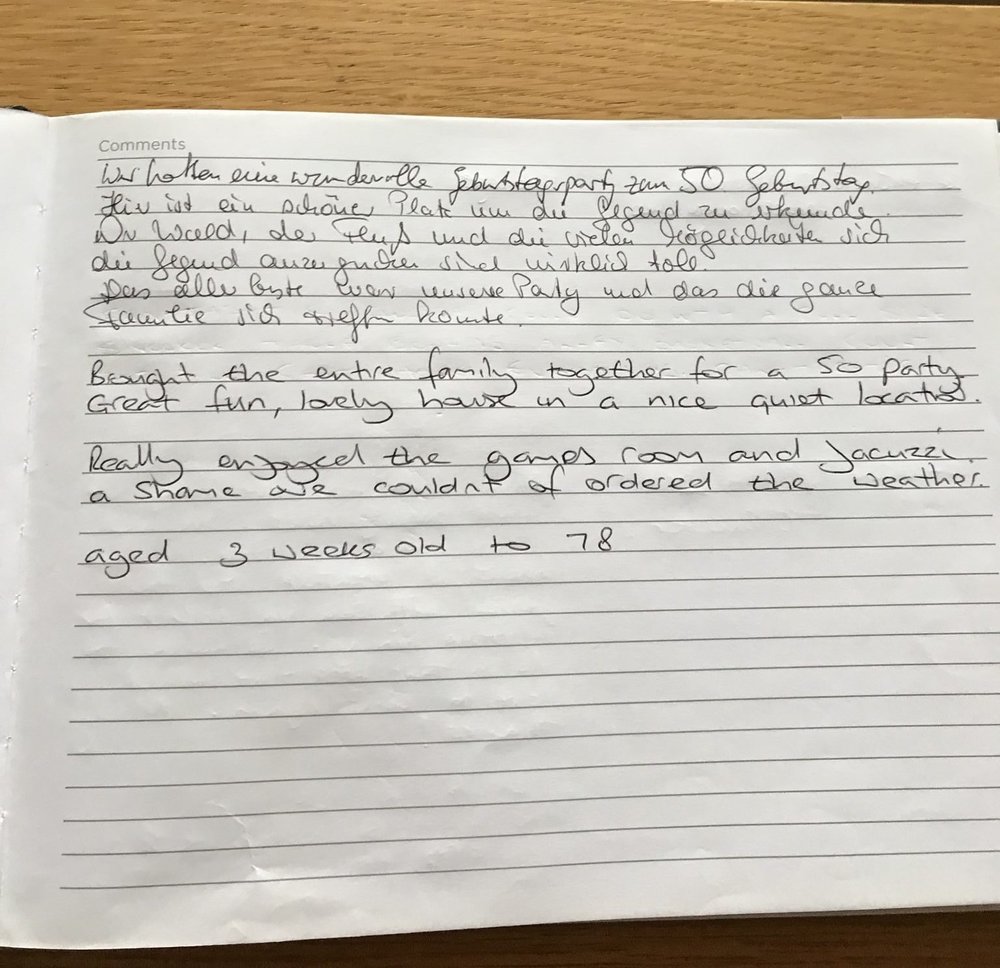 Comments
Wir hatten eine wundervolle Geburtstagsparty zum 50 Geburtstag.
Hier ist ein schöner Platz um die Gegend zu erkunde.
Der Wald, der Fluß und die vielen Möglichkeiten sich
die Gegend anzugucken sind wirklich toll.
Das aller beste war unsere Party und das die ganze
Familie sich treffen konnte.
Brought the entire family together for a 50 party
Great fun, lovely house in a nice quiet location.
Really enjoyed the games room and Jacuzzi.
a shame we couldnt of ordered the weather.
aged 3 weeks old to 78